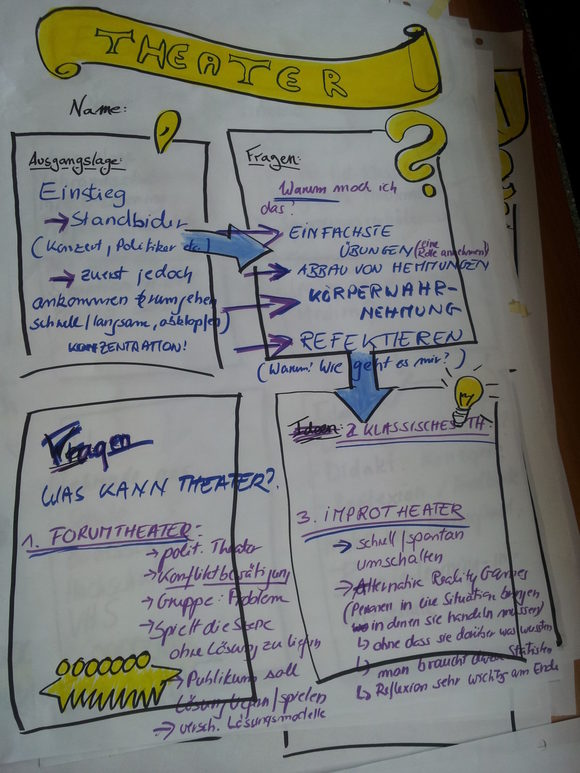 THEATER
Name:
Ausgangslage:
Einstieg
→ Standbilder
(Konzert, Politiker etc.)
→ zuerst jedoch
ankommen & rumgehen
schnell/langsam, abklopfen)
KONZENTRATION!
Fragen:
?
Warum mach ich
das?
→ EINFACHSTE
ÜBUNGEN (eine
Rolle annehmen)
→ ABBAU VON HEMMUNGEN
→ KÖRPERWAHR-
NEHMUNG
→ REFEKTIEREN
(Warum? Wie geht es mir?)
Fragen
WAS KANN THEATER?
1. FORUMTHEATER:
→ polit. Theater
→ Konfliktbewältigung
→ Gruppe: Problem
→ Spielt die Szene
ohne Lösung zu liefern
→ Publikum soll
Lösung liefern/spielen
→ versch. Lösungsmodelle
Ideen: 2. KLASSISCHES TH.
3. IMPROTHEATER
→ schnell/spontan
umschalten
→ Alternative Reality Games
(Personen in eine Situation bringen
in denen sie handeln müssen)
↳ ohne dass sie darüber was wussten
↳ man braucht Statisten
↳ Reflexion sehr wichtig am Ende